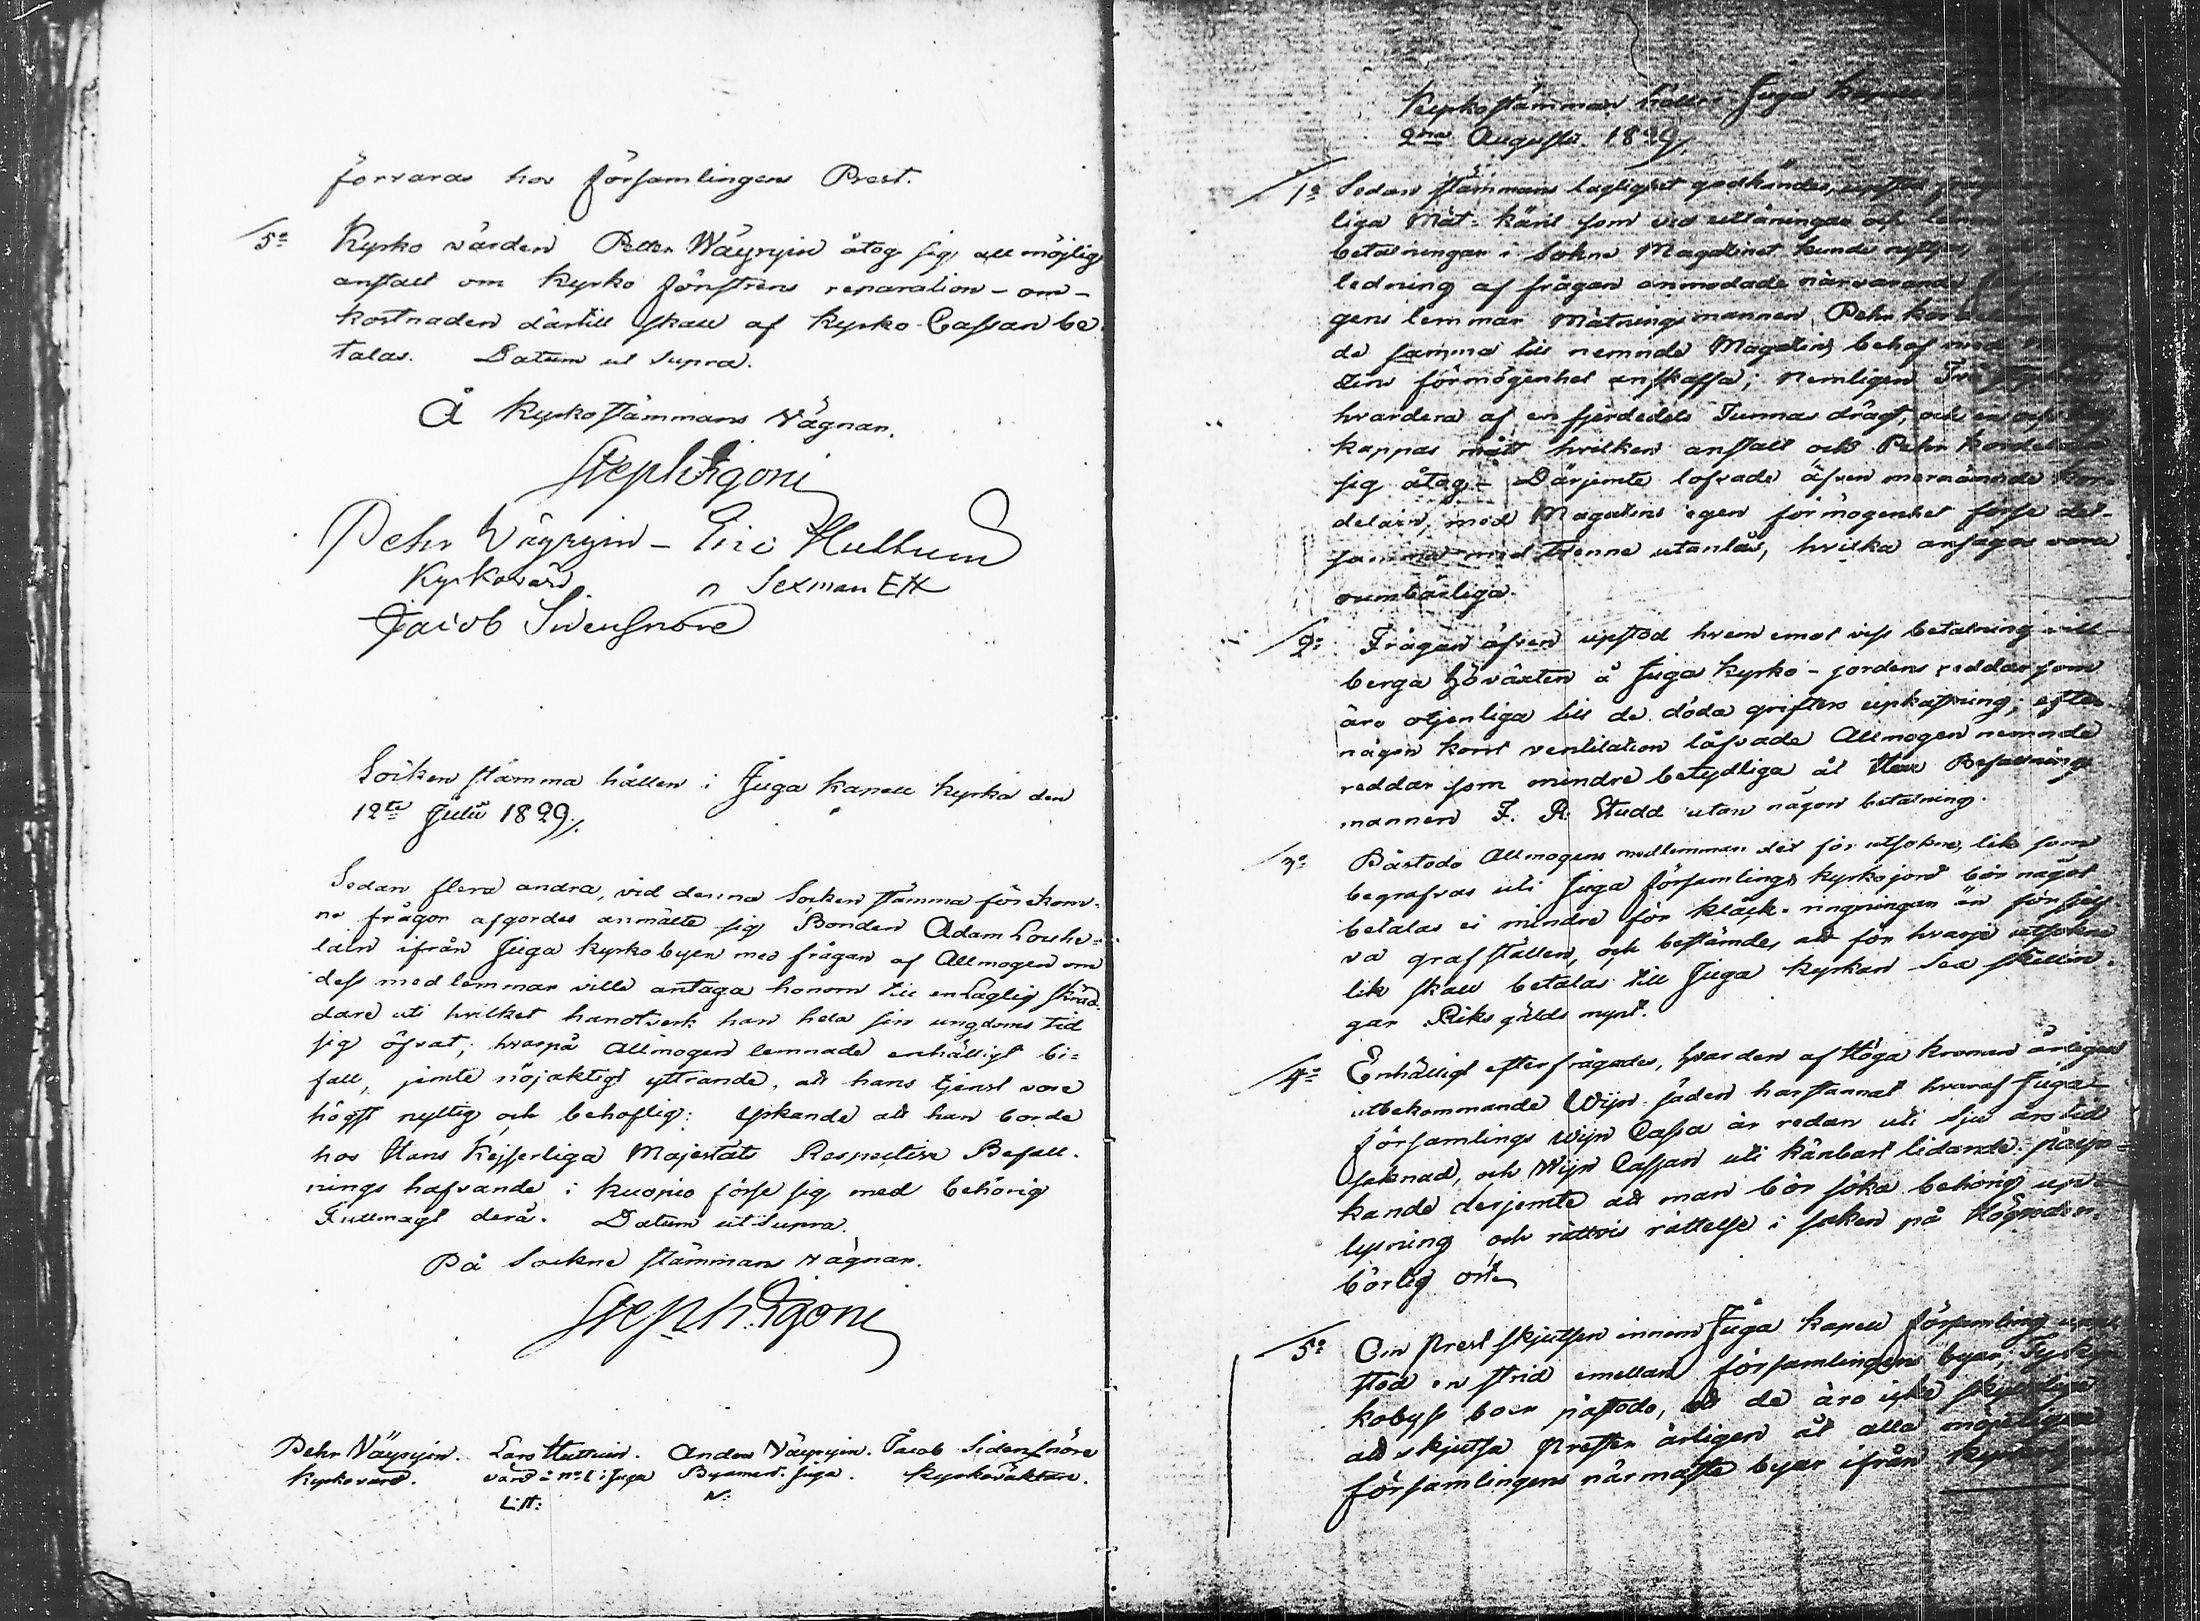 förvaras hos församlingens Prest.
5o Kyrko värden Petter Wäyryin åtog sig all möjlig
anstalt om Kyrko fönstrens reparation - om-
kostnaden därtill skall af Kyrko-Cassan be
talas. Datum ut supra.
Å Kyrkostämmans Vägnar.
Steph: Agoni
Pehr Wäyryin - Eric Huttuin
Kyrkovärd Sexman EH
Jacob Sidensnöre
Socken stämma hållen i Juga Kapell Kyrka den
12te Julii 1829/.
Sedan flera andra, vid denna Socken stämma förekom-
ne frågor afgordes anmälte sig Bonden Adam Louhe-
lain ifrån Juga Kyrkobyen med frågan af Allmogen om
dess medlemmar ville antaga honom till en Laglig skräd-
dare uti hvilket handtverk han hela sin ungdoms tid
sig öfvat; hvarpå Allmogen lemnade enhälligt bi-
fall, jemte nöjaktigt yttrande, att hans tjenst vore
högst nyttig och behoflig: yrkande att han borde
hos Hans Kejserliga Majestäts Respective Befall-
nings hafvande i Kuopio förse sig med behörig
Fullmagt derå. Datum ut supra.
På Sockne stämmans vägnar.
Steph: Agoni
Pehr Väyryin. Lars Huttuin. Anders Väyryin. Jacob Sidensnöre
Kyrkovärd. värd å No 1 i Juga Byamen i Juga. Kyrkoväktare.
L:H:
Kyrkostämman hållen i Juga Kapell
2dra Augusti 1829/.
1o Sedan stämmans laglighet godkändes,
liga Mät-käril som vid utlåningar och
betalningar i Sokne Magatinet kunde
ledning af frågan anmodade närvarande
gens lemmar Mätningsmannen, Pehr
de samma till nemnde Magatins behof med
tins förmögenhet anskaffa; nemligen Två
hvardera af en fjerdedels Tunnas drägt, och en
kappas mått hvilken anstalt och Pehr Kordelain
sig åtog - Därjemte lofvade äfven mernämnde Kor-
delain, med Magatins egen förmögenhet förse det-
samma med trenne utanlås, hvilka ansågos vara
oumbärliga.
2o Frågan äfven upstod hvem emot viss betalning vill
berga höväxten å Juga Kyrko-jordens reddar som
äro otjenliga till de döda grifters upkastning; efter
någon kort ventilation låfvade Allmogen nemnde
reddar som mindre betydliga åt Herr Befallnings
mannen F. R. Studd utan någon betalning.
3o Påstodo Allmogens medlemmar det för utsokne, lik som
begrafvas uti Juga församlings kyrkojord bör något
betalas ei mindre för kläck-ringningar än för själf-
va graf stället, och bestämdes att för hvarje utsokne
lik skall betalas till Juga Kyrkan Sex skillin-
gar Riksgälds mynt.
4o Enhälligt efterfrågades, hvar den af Höga Kronan årligen
utbekommande Wijn-säden har stannat hvaraf Juga
församlings wijn Cassa är redan uti sju års tid
saknad, och Wijn Cassan uti känbart lidande: påyr-
kande derjemte att man bör söka behörig up-
lysning och rättvis rättelse i saken på Högveder-
börlig ort.
5o Om Prest skjutsen innom Juga Kapell församling upp
stod en strid emellan församlingens byar; Kyr
kobyss boer påstodo, att de äro icke skyldige
att skjutsa Presten årligen åt alla möjeligen
församlingens närmaste byar ifrån